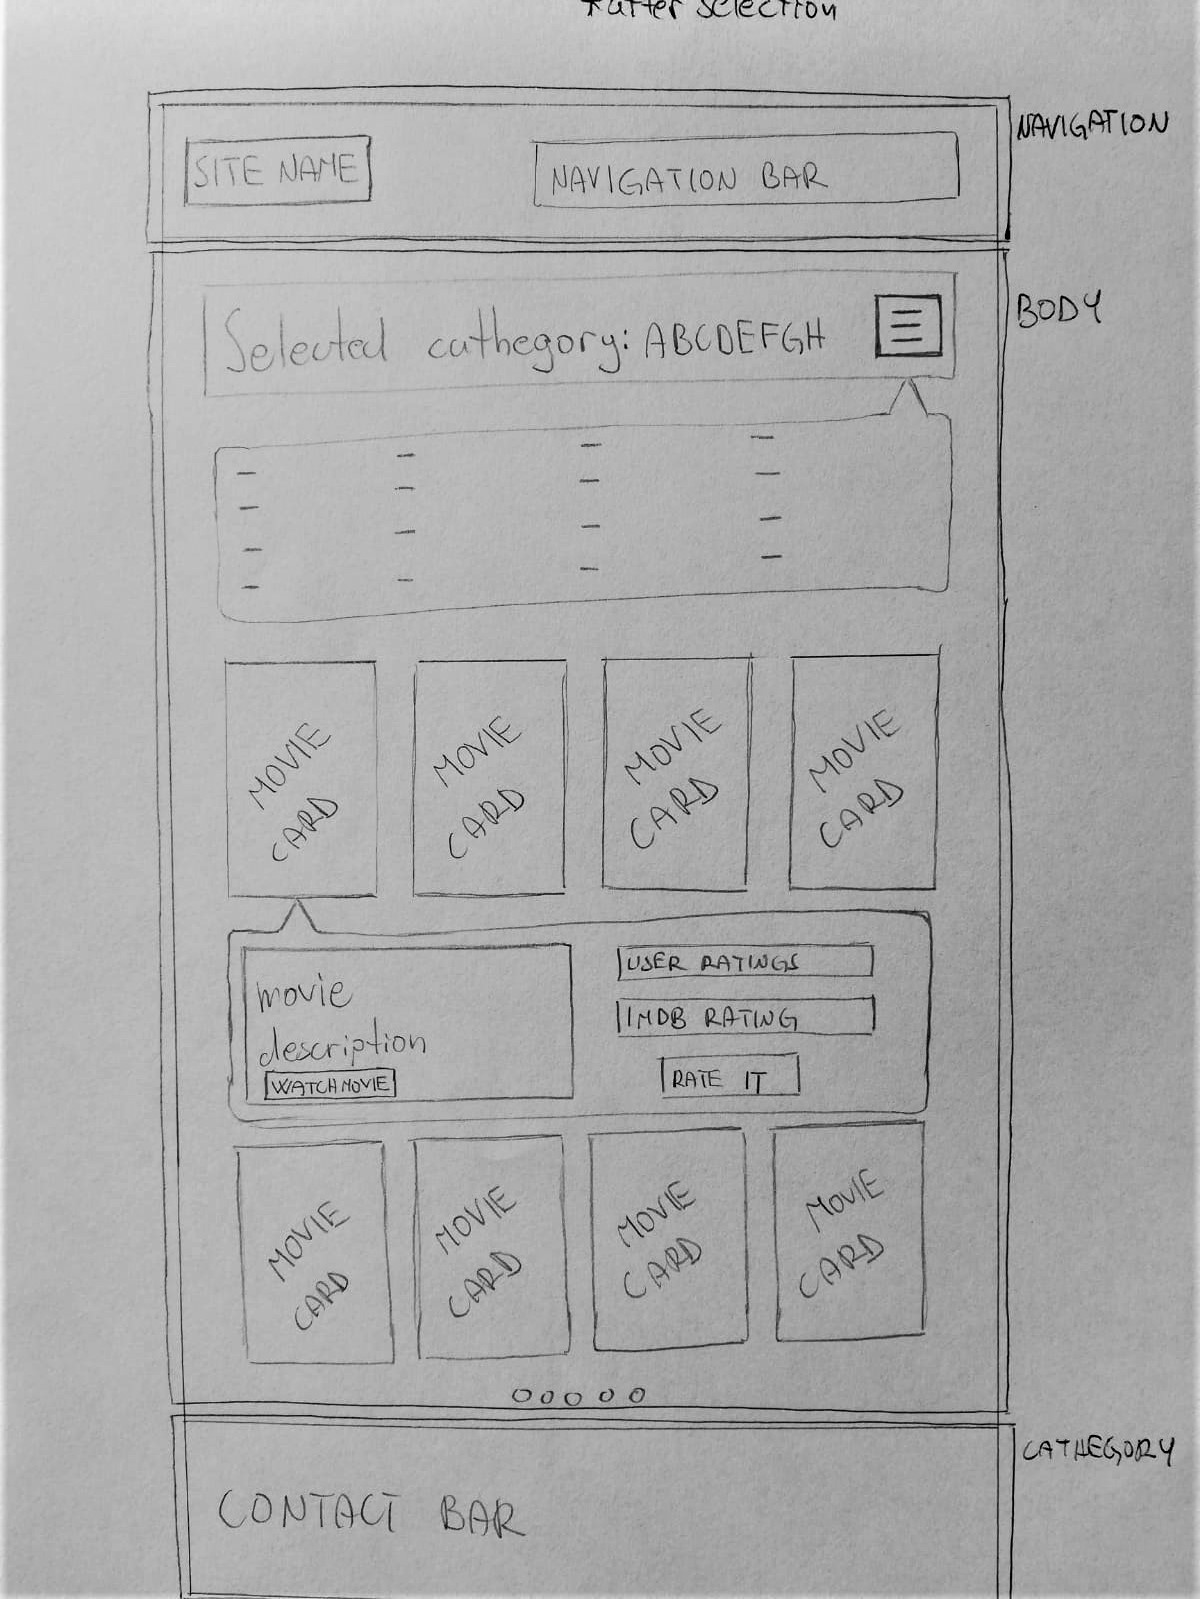 *after selection
NAVIGATION
SITE NAME
NAVIGATION BAR
BODY
Selected cathegory: ABCDEFGH
MOVIE
CARD
MOVIE
CARD
MOVIE
CARD
MOVIE
CARD
movie
description
WATCH MOVIE
USER RATINGS
IMDB RATING
RATE IT
MOVIE
CARD
MOVIE
CARD
MOVIE
CARD
MOVIE
CARD
CATHEGORY
CONTACT BAR